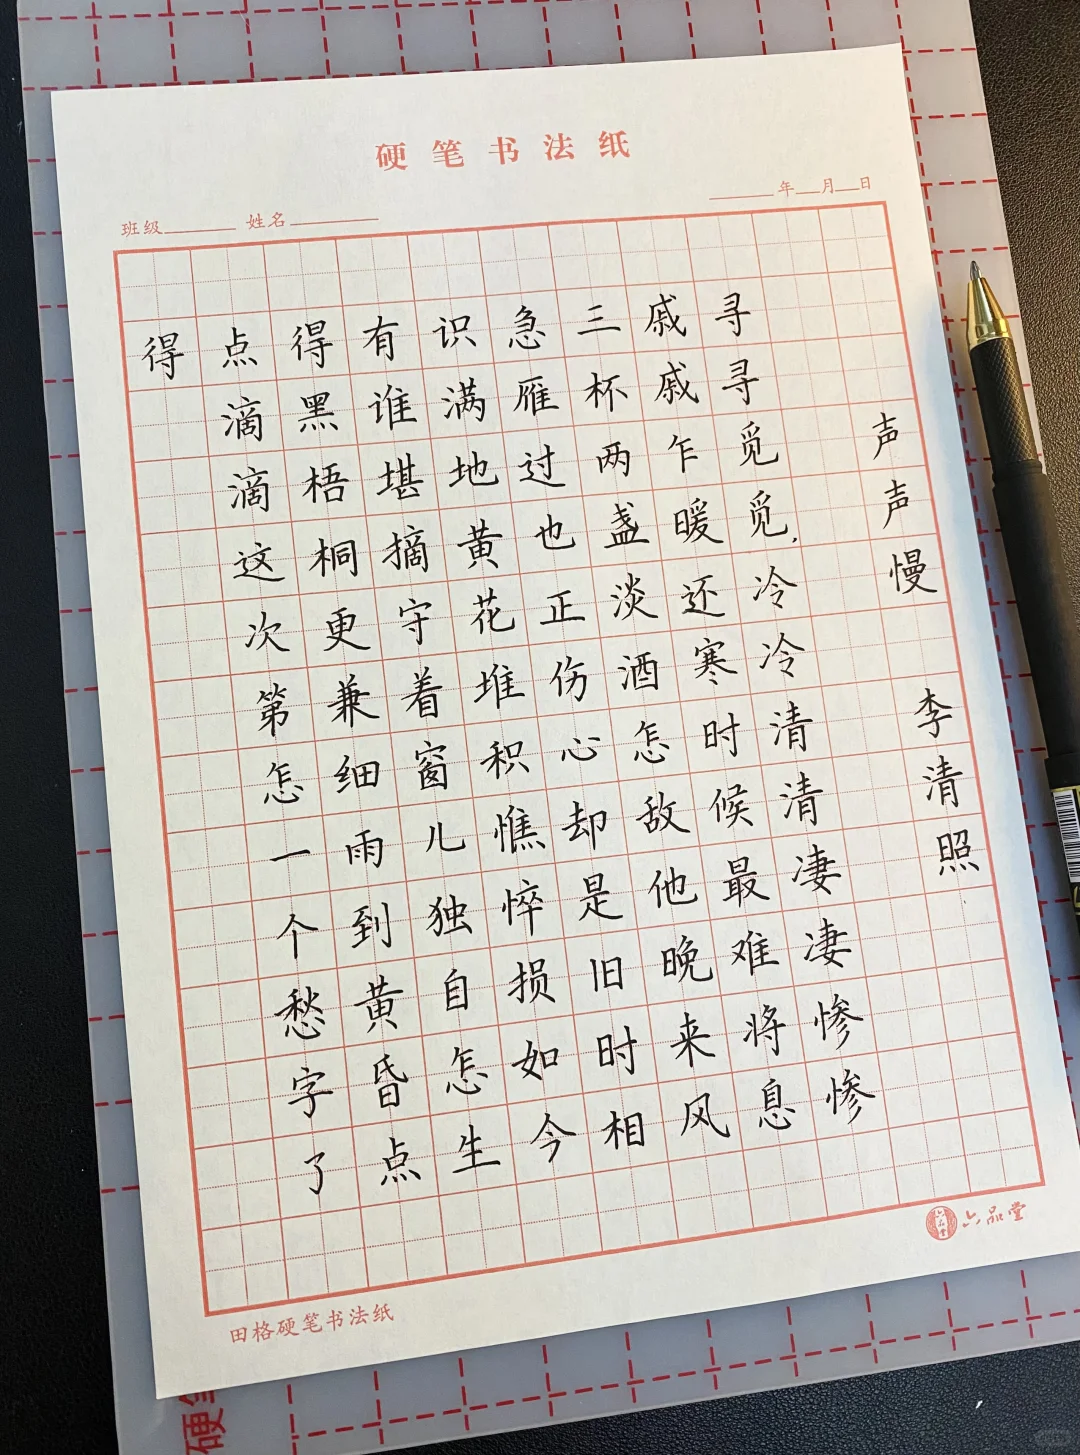 硬笔书法纸
班级 姓名 年 月 日
声声慢 李清照
寻寻觅觅，冷冷清清凄凄惨惨
戚戚乍暖还寒时候最难将息
三杯两盏淡酒怎敌他晚来风
急雁过也正伤心却是旧时相
识满地黄花堆积憔悴损如今
有谁堪摘守着窗儿独自怎生
得黑梧桐更兼细雨到黄昏点
点滴滴这次第怎一个愁字了
得
六品堂
田格硬笔书法纸
硬